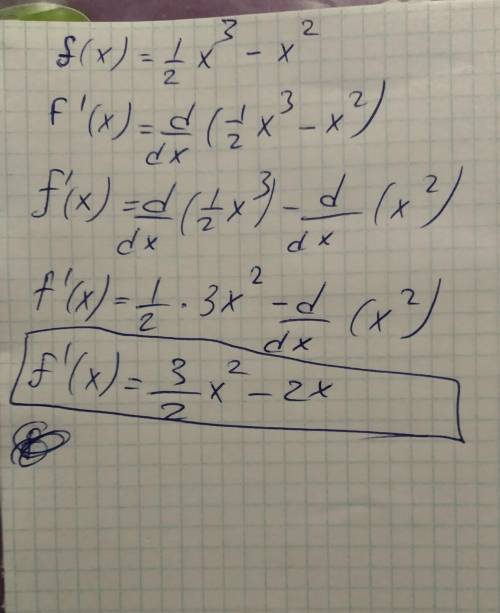 f(x) = 1/2 x³ - x²
f'(x) = d/dx (1/2 x³ - x²)
f'(x) = d/dx (1/2 x³) - d/dx (x²)
f'(x) = 1/2 · 3x² - d/dx (x²)
f'(x) = 3/2 x² - 2x